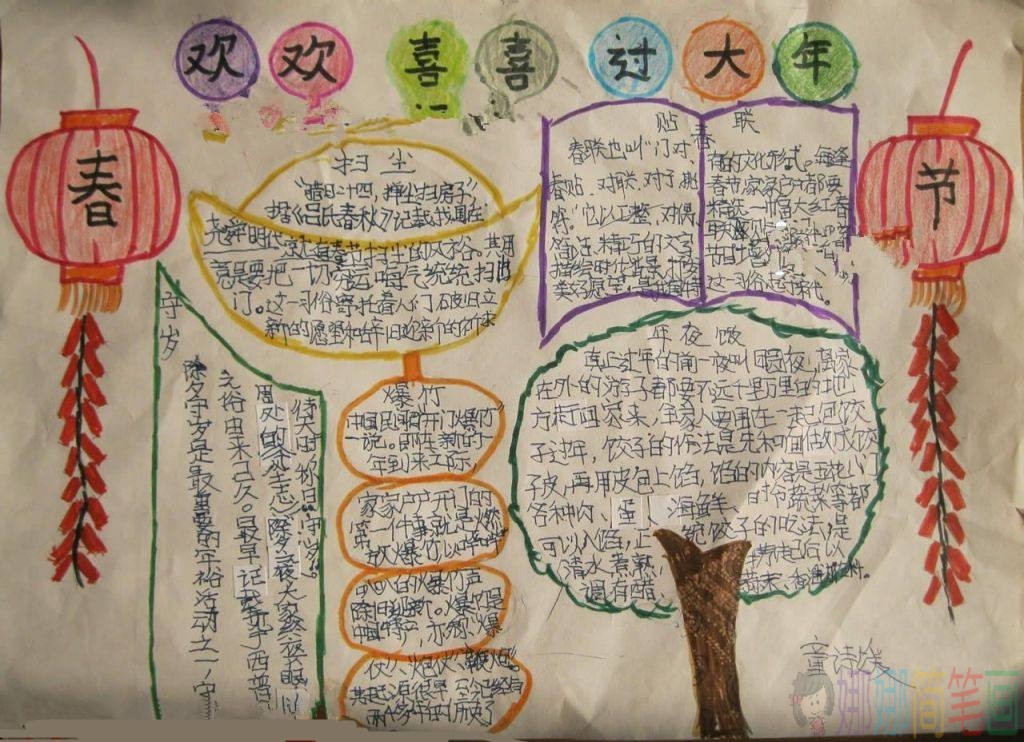 欢欢喜喜过大年
春
节
扫尘
"腊月二十四,掸尘扫房子"
据《吕氏春秋》记载,我国在
尧舜时代就有春节扫尘的风俗。其用
意是要把一切穷运、晦气统统扫出
门。这一习俗寄托着人们破旧立
新的愿望和辞旧迎新的祈求
贴春联
春联也叫"门对、
春贴、对联、对子、桃
符"它以工整、对偶
简洁、精巧的文字
描绘时代背景、抒发
美好愿望,是我国特
有的文化形式。每逢
春节,家家户户都要
精选一幅大红春
这一习俗
守岁
除夕守岁是最重要的年俗活动之一,守
岁俗由来已久。最早记载于西晋
周处的《风土志》除夕之夜大家终夜不眠,
待天明称曰"守岁"。
爆竹
中国民间有"开门爆竹"
一说。即在新的一
年到来之际,
家家户户开门的
第一件事就是燃
放爆竹,以哔哔
叭叭的爆竹声
除旧迎新。爆竹是
中国特产,亦称"爆
仗"、"炮仗"、"鞭炮"。
其起源很早,至今已有
两千多年的历史了
年夜饭
真正过年的前一夜叫团圆夜,离家
在外的游子都要不远千里万里赶的地
方赶回家来,全家人要围在一起包饺
子过年,饺子的作法是先和面做成饺
子皮,再用皮包上馅,馅的内容是五花八门
各种肉、蛋、海鲜、时令蔬菜等都
可以入馅,正统饺子的吃法,是
清水煮熟,捞起后以
调有醋、
童诗
娜娜简笔画